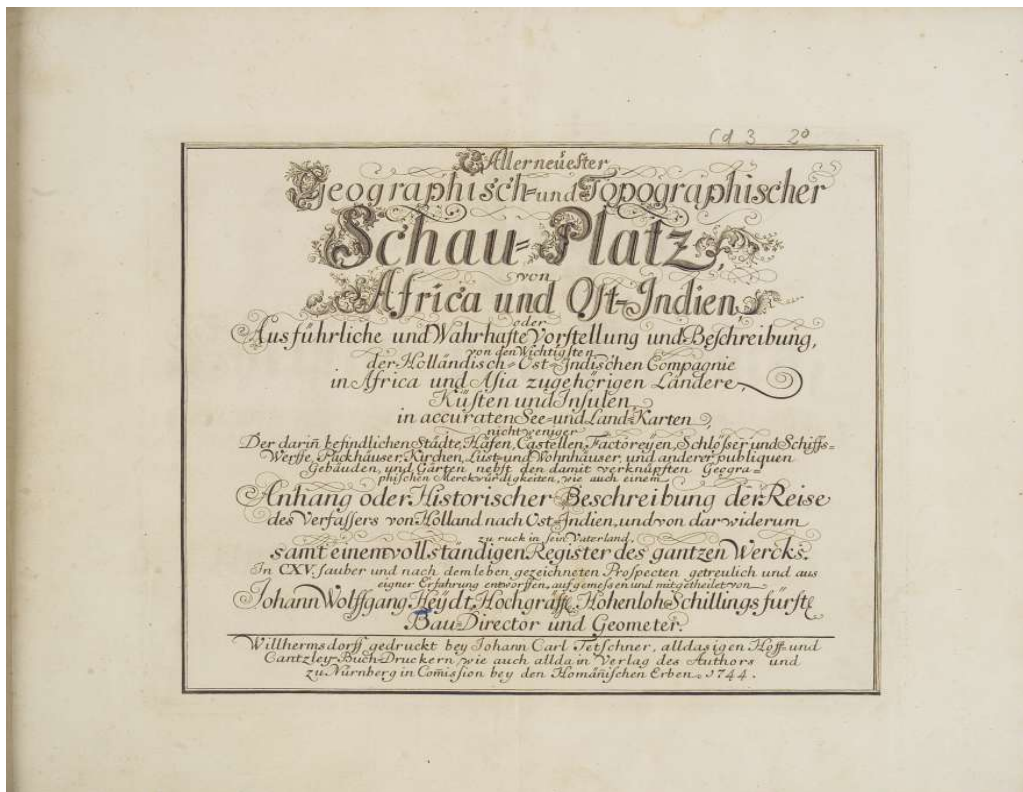 Cd 3 2°
Allerneuester
Geographisch- und Topographischer
Schau-Platz,
von
Africa und Ost-Indien,
oder
Ausführliche und Wahrhafte Vorstellung und Beschreibung,
von den Wichtigsten
der Holländisch-Ost-Indischen Compagnie
in Africa und Asia zugehörigen Ländere,
Küsten und Insulen,
in accuraten See- und Land-Karten,
nicht weniger
Der darin̄ befindlichen Städte, Häfen, Castellen, Factoreyen, Schlösser und Schiffs-
Werffe, Packhäuser, Kirchen, Lust- und Wohnhäuser, und anderer publiquen
Gebäuden, und Gärten nebst den damit verknüpften Geogra-
phischen Merckwürdigkeiten, wie auch einem
Anhang oder Historischer Beschreibung der Reise
des Verfassers von Holland nach Ost-Indien, und von dar widerum
zu ruck in sein Vaterland,
samt einem vollständigen Register des gantzen Wercks.
In CXV. sauber und nach dem leben gezeichneten Prospecten getreulich und aus
eigner Erfahrung entworffen, aufgemessen und mitgetheilet von
Johann Wolffgang Heÿdt, Hochgräffl. Hohenloh Schillings fürstl.
Bau-Director und Geometer.
Willhermsdorff gedruckt bey Johann Carl Tetschner, alldasigen Hoff- und
Cantzley-Buch-Druckern, wie auch allda in Verlag des Authors und
zu Nürnberg in Com̄ission bey den Homän̄ischen Erben. 1744.